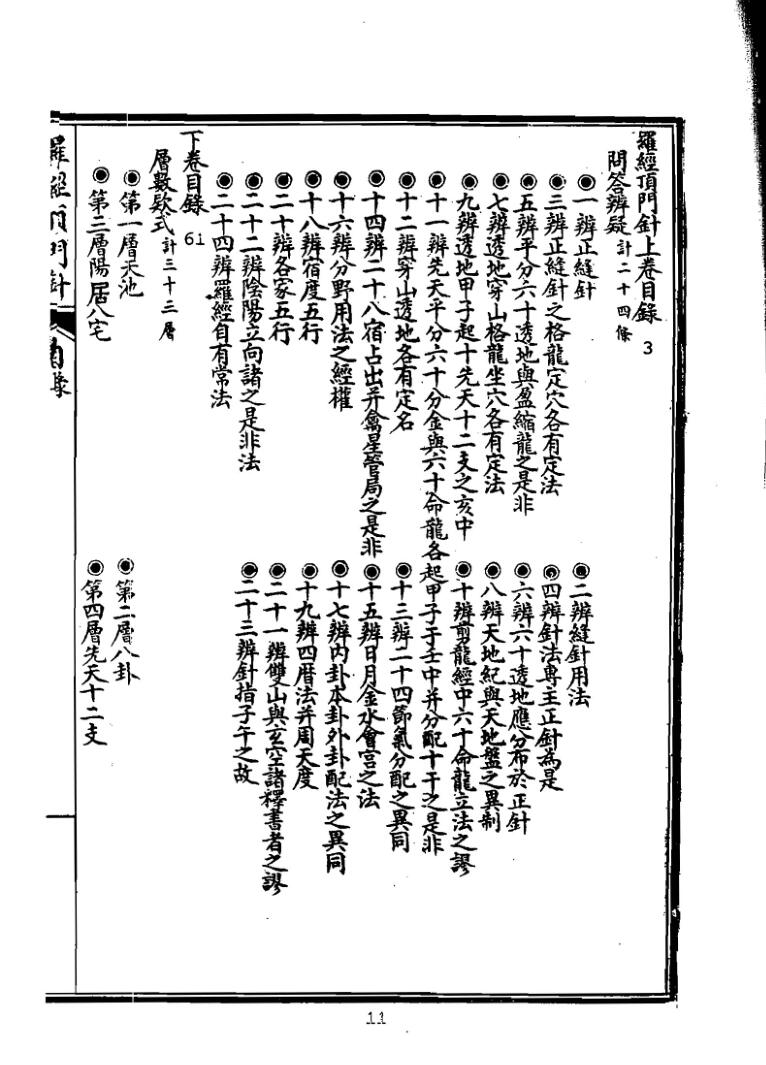 羅經頂門針上卷目錄 3
問答辨疑 計二十四條
一辨正縫針
二辨縫針用法
三辨正縫針之格龍定穴各有定法
四辨針法專主正針為是
五辨平分六十透地與盈縮龍之是非
六辨六十透地應分布於正針
七辨透地穿山格龍坐穴各有定法
八辨天地紀與天地盤之異制
九辨透地甲子起十先天十二支之亥中
十辨剪龍經中六十命龍立法之謬
十一辨先天平分六十分金與六十命龍各起甲子于壬中并分配十干之是非
十二辨穿山透地各有定名
十三辨二十四節氣分配之異同
十四辨二十八宿占出并禽星管局之是非
十五辨日月金水會宮之法
十六辨分野用法之經權
十七辨內卦本卦外卦配法之異同
十八辨宿度五行
十九辨四曆法并周天度
二十辨各家五行
二十一辨雙山與玄空諸釋書者之謬
二十二辨陰陽立向諸之是非法
二十三辨針指子午之故
二十四辨羅經自有常法
下卷目錄 61
層數欵式 計三十三層
第一層天池
第二層八卦
第三層陽居八宅
第四層先天十二支
羅經頂門針
目錄
11